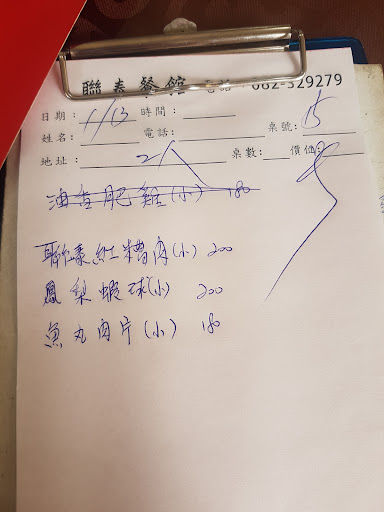 聯泰餐館 電話:062-329279
日期: 1/13 時間:
姓名: 電話: 桌號: 15
地址: 2人 桌數: 價位:
油香肥雞(小) 180
聯泰紅糟肉(小) 200
鳳梨蝦球(小) 200
魚丸肉片(小) 180